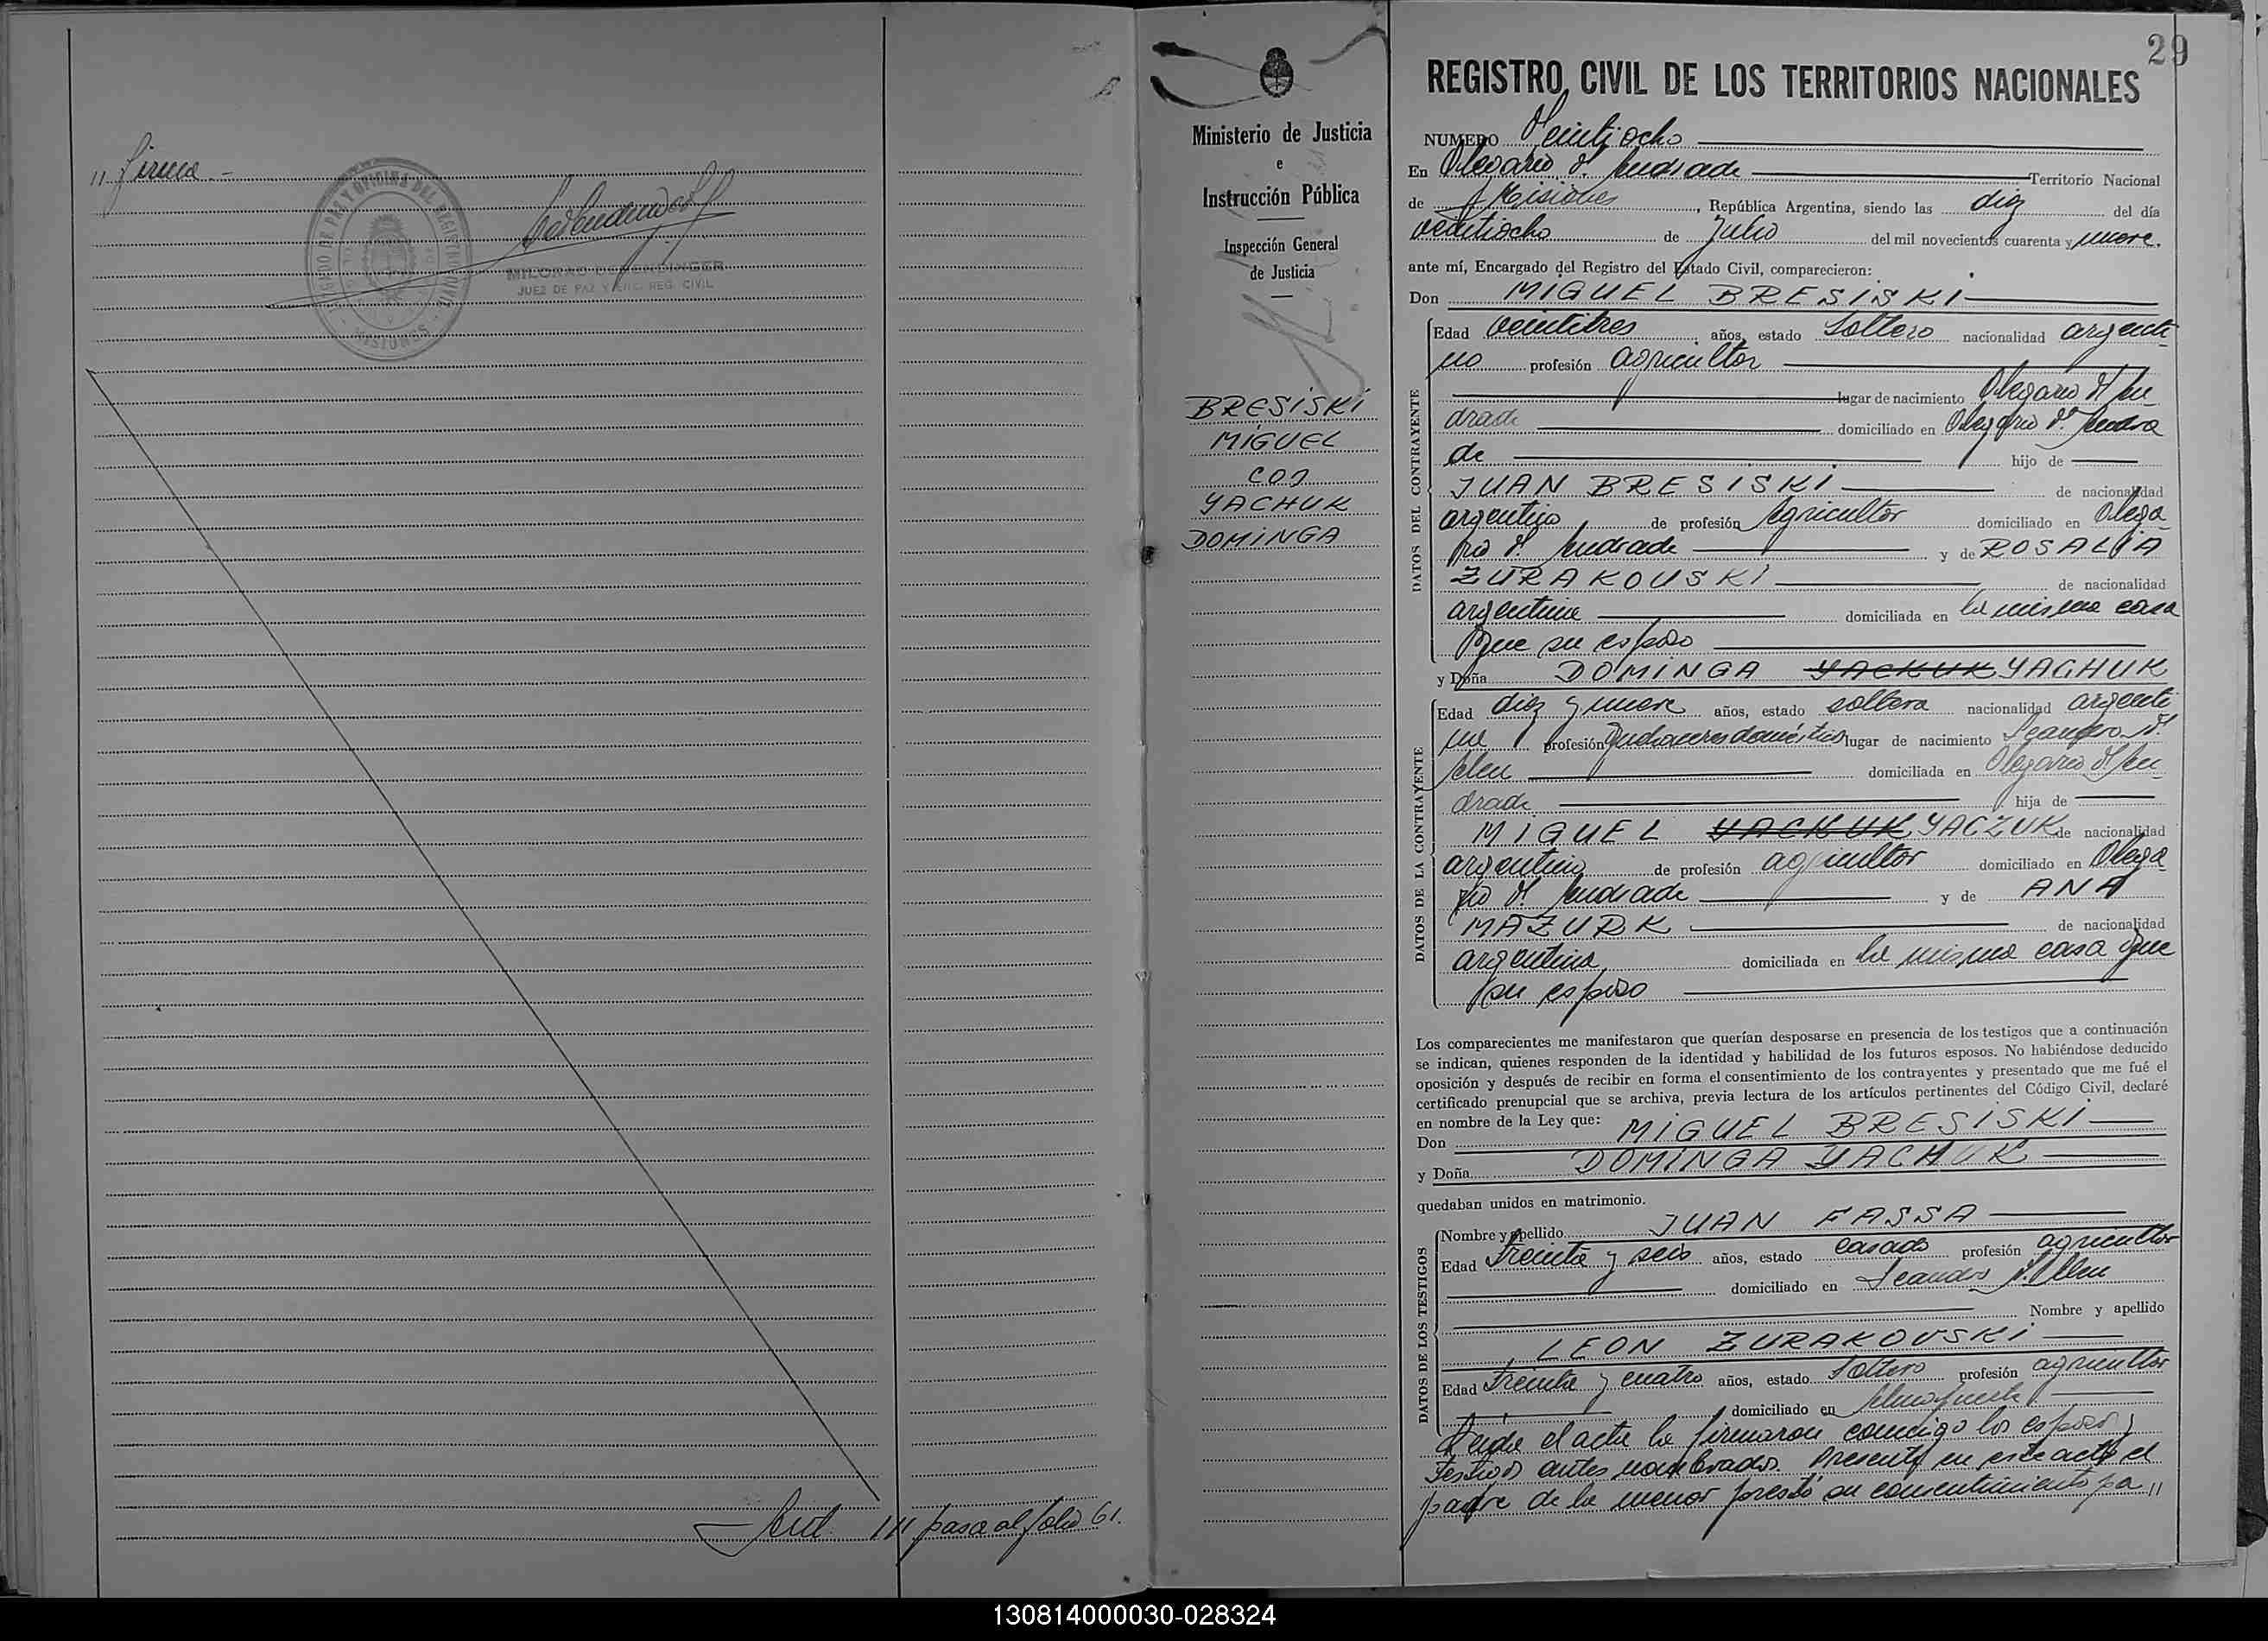 " firma.-
JUZGADO DE PAZ Y OFICINA DEL REGISTRO CIVIL
MISIONES
JUEZ DE PAZ Y ENC. REG. CIVIL
/// pasa al folio 61.
Ministerio de Justicia
e
Instrucción Pública
Inspección General
de Justicia
BRESISKI
MIGUEL
CON
YACHUK
DOMINGA
29
REGISTRO CIVIL DE LOS TERRITORIOS NACIONALES
NUMERO Veintiocho
En Olegario V. Andrade Territorio Nacional
de Misiones, República Argentina, siendo las diez del día
veintiocho de Julio del mil novecientos cuarenta y nueve.
ante mí, Encargado del Registro del Estado Civil, comparecieron:
Don MIGUEL BRESISKI
DATOS DEL CONTRAYENTE
Edad veintitres años, estado soltero nacionalidad argenti
no profesión agricultor
lugar de nacimiento Olegario V. An
drade domiciliado en Olegario V. Andra
de hijo de
JUAN BRESISKI de nacionalidad
argentino de profesión Agricultor domiciliado en Olega
rio V. Andrade y de ROSALIA
ZURAKOUSKI de nacionalidad
argentina domiciliada en la misma casa
que su esposo
y Doña DOMINGA YACKUK YACHUK
DATOS DE LA CONTRAYENTE
Edad diez y nueve años, estado soltera nacionalidad argenti
na profesión quehaceres domésticos lugar de nacimiento Leandro N.
Alem domiciliada en Olegario V. An
drade hija de
MIGUEL YACHUK YACZUK de nacionalidad
argentino de profesión agricultor domiciliado en Olega
rio V. Andrade y de ANA
MAZURK de nacionalidad
argentina domiciliada en la misma casa que
su esposo
Los comparecientes me manifestaron que querían desposarse en presencia de los testigos que a continuación
se indican, quienes responden de la identidad y habilidad de los futuros esposos. No habiéndose deducido
oposición y después de recibir en forma el consentimiento de los contrayentes y presentado que me fué el
certificado prenupcial que se archiva, previa lectura de los artículos pertinentes del Código Civil, declaré
en nombre de la Ley que:
Don MIGUEL BRESISKI
y Doña DOMINGA YACHUK
quedaban unidos en matrimonio.
DATOS DE LOS TESTIGOS
Nombre y apellido JUAN FASSA
Edad Treinta y seis años, estado casado profesión agricultor
domiciliado en Leandro N. Alem
Nombre y apellido
LEON ZURAKOVSKI
Edad Treinta y cuatro años, estado soltero profesión agricultor
domiciliado en Almafuerte
Leída el acta la firmaron conmigo los esposos y
testigos antes nombrados. Presente en este acto el
padre de la menor prestó su consentimiento pa "
130814000030-028324